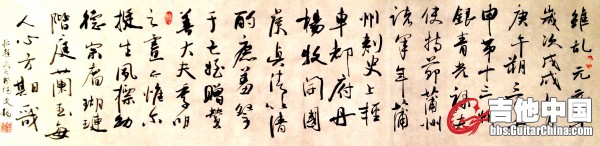 維乾元元年
歲次戊戌九月
庚午朔三日壬
申第十三叔
銀青光祿大夫
使持節蒲州
諸軍事蒲
州刺史上輕
車都尉丹
楊牧開國
侯真卿以清
酌庶羞祭
于亡姪贈贊
善大夫季明
之靈曰惟爾
挺生夙標幼
德宗廟瑚璉
階庭蘭玉每
人心方期戩
吉他中国
bbs.GuitarChina.com